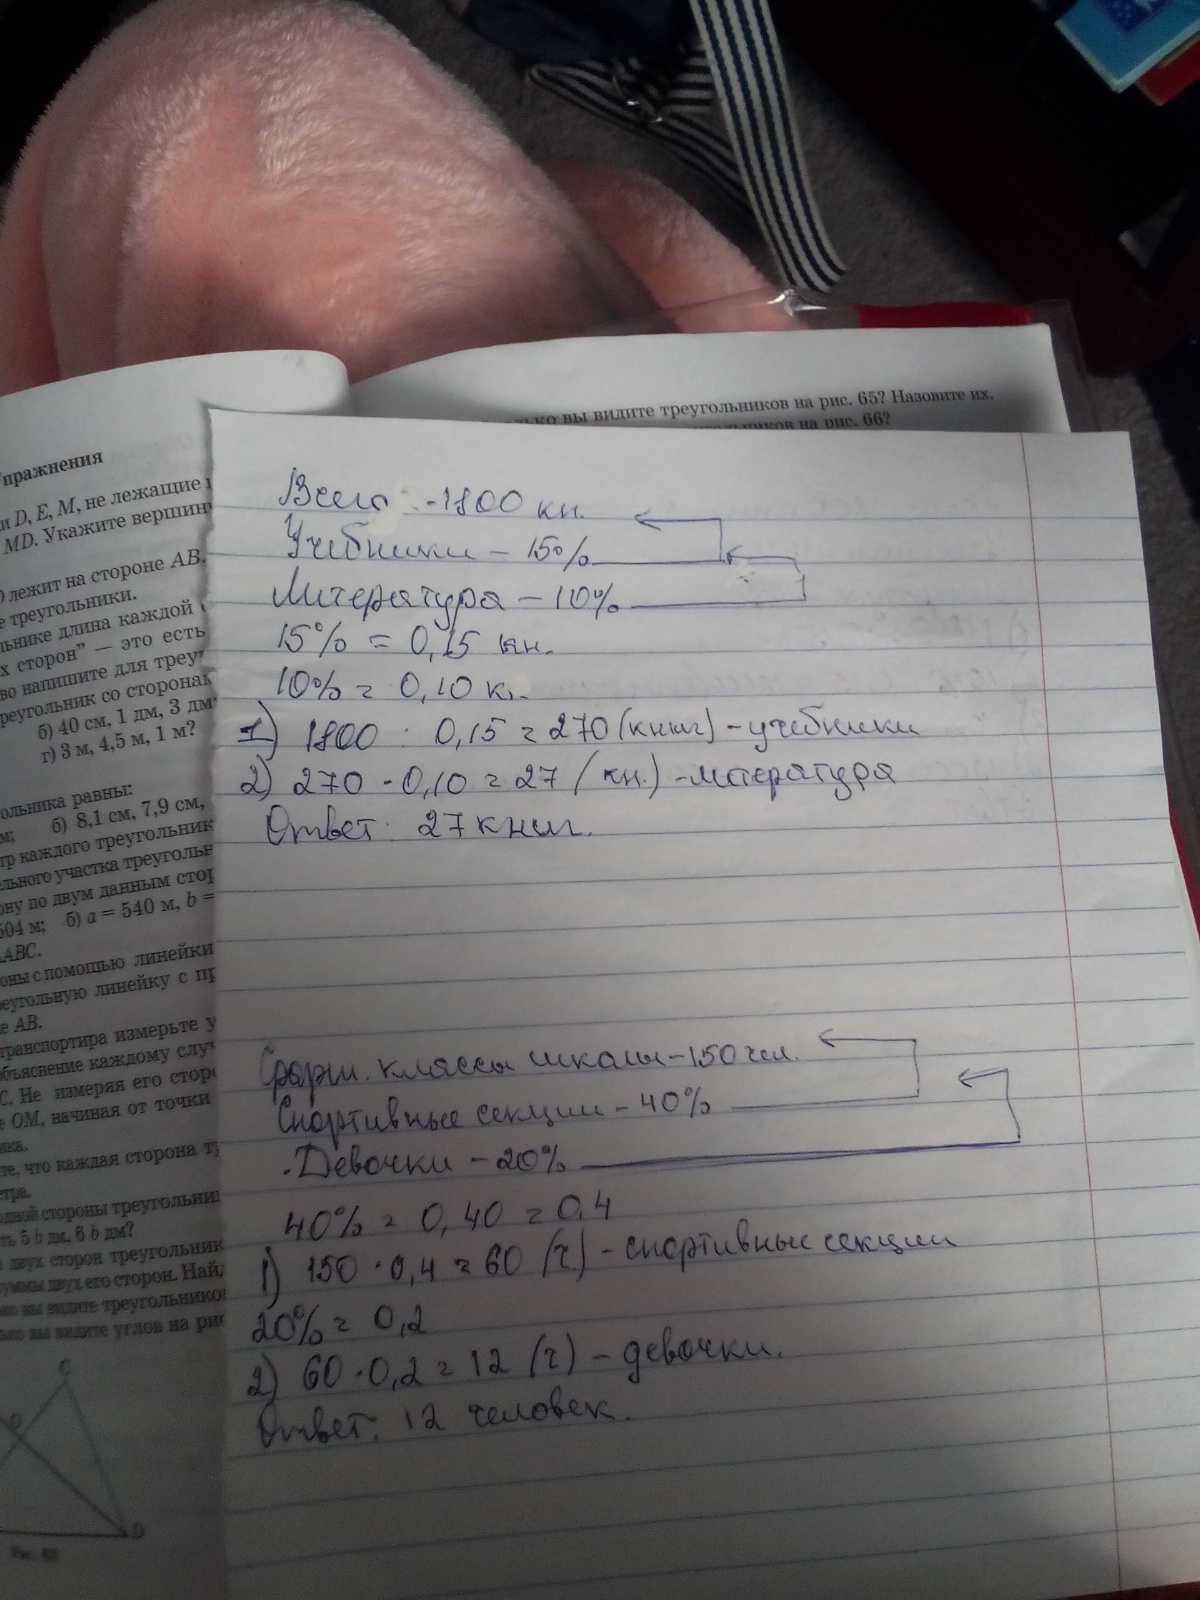 вы видите треугольников на рис. 65? Назовите их.
на рис. 66?
Упражнения
и D, E, M, не лежащие
MD. Укажите вершин
лежит на стороне AB.
е треугольники.
длина каждой
х сторон" — это есть
во напишите для
со сторонам
б) 40 см, 1 дм, 3 дм
г) 3 м, 4,5 м, 1 м?
равны:
м; б) 8,1 см, 7,9 см,
каждого треугольник
участка
ону по двум данным
504 м; б) a = 540 м, b =
ABC.
с помощью линейки
линейку с
е AB.
транспортира измерьте
объяснение каждому
С. Не измеряя его
е OM, начиная от точки
что каждая сторона
одной стороны
ть 5 b дм, 6 b дм?
двух сторон
суммы двух его сторон.
вы видите
вы видите углов на
C
O
D
Рис.
Всего : -1800 кн.
Учебники - 15%
Литература - 10%
15% = 0,15 кн.
10% = 0,10 к.
1) 1800 · 0,15 = 270 (книг) - учебники
2) 270 · 0,10 = 27 (кн.) - литература
Ответ: 27 книг.
классы школы - 150 чел.
Спортивные секции - 40%
Девочки - 20%
40% = 0,40 = 0,4
1) 150 · 0,4 = 60 (ч) - спортивные секции
20% = 0,2
2) 60 · 0,2 = 12 (ч) - девочки.
Ответ: 12 человек.